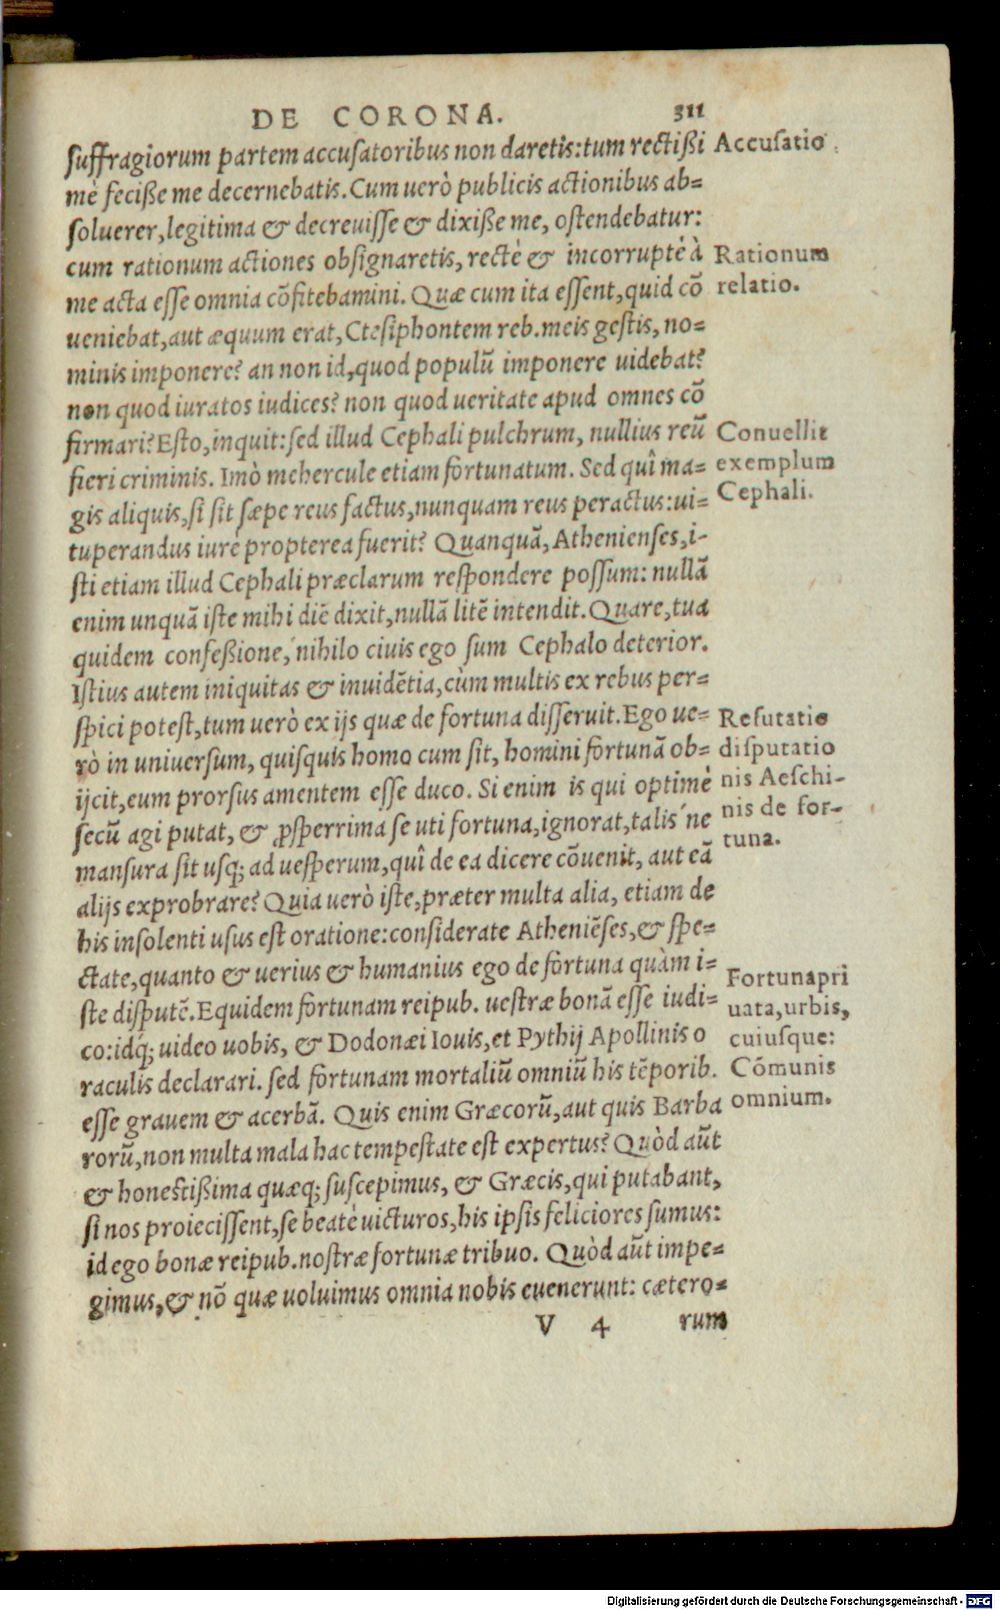 DE CORONA. 311
suffragiorum partem accusatoribus non daretis: tum rectißi
mè fecisse me decernebatis. Cum uerò publicis actionibus ab=
soluerer, legitima & decreuisse & dixiße me, ostendebatur:
cum rationum actiones obsignaretis, rectè & incorruptè à
me acta esse omnia cõfitebamini. Quæ cum ita essent, quid cõ
ueniebat, aut æquum erat, Ctesiphontem reb. meis gestis, no=
minis imponere? an non id, quod populũ imponere uidebat?
non quod iuratos iudices? non quod ueritate apud omnes cõ
firmari? Esto, inquit: sed illud Cephali pulchrum, nullius reũ
fieri criminis. Imò mehercule etiam fortunatum. Sed quî ma=
gis aliquis, si sit sæpe reus factus, nunquam reus peractus: ui=
tuperandus iure propterea fuerit? Quanquã, Athenienses, i-
sti etiam illud Cephali præclarum respondere possum: nullã
enim unquã iste mihi diẽ dixit, nullã litẽ intendit. Quare, tua
quidem confeßione, nihilo ciuis ego sum Cephalo deterior.
Istius autem iniquitas & inuidẽtia, cùm multis ex rebus per=
spici potest, tum uerò ex ijs quæ de fortuna disseruit. Ego ue=
rò in uniuersum, quisquis homo cum sit, homini fortunã ob=
ijcit, eum prorsus amentem esse duco. Si enim is qui optimè
secũ agi putat, & ꝓsperrima se uti fortuna, ignorat, talis ne
mansura sit usq; ad uesperum, quî de ea dicere cõuenit, aut eã
alijs exprobrare? Quia uerò iste, præter multa alia, etiam de
his insolenti usus est oratione: considerate Atheniẽses, & spe=
ctate, quanto & uerius & humanius ego de fortuna quàm i=
ste disputẽ. Equidem fortunam reipub. uestræ bonã esse iudi=
co: idq; uideo uobis, & Dodonæi Iouis, et Pythij Apollinis o
raculis declarari. sed fortunam mortaliũ omniũ his tẽporib.
esse grauem & acerbã. Quis enim Græcorũ, aut quis Barba
rorũ, non multa mala hac tempestate est expertus? Quòd aũt
& honestißima quæq; suscepimus, & Græcis, qui putabant,
si nos proiecissent, se beatè uicturos, his ipsis feliciores sumus:
id ego bonæ reipub. nostræ fortunæ tribuo. Quòd aũt impe=
gimus, & nõ quæ uoluimus omnia nobis euenerunt: cætero=
V 4 rum
Accusatio
Rationum
relatio.
Conuellit
exemplum
Cephali.
Refutatio
disputatio
nis Aeschi-
nis de for-
tuna.
Fortuna pri
uata, urbis,
cuiusque:
Cõmunis
omnium.
Digitalisierung gefördert durch die Deutsche Forschungsgemeinschaft - DFG